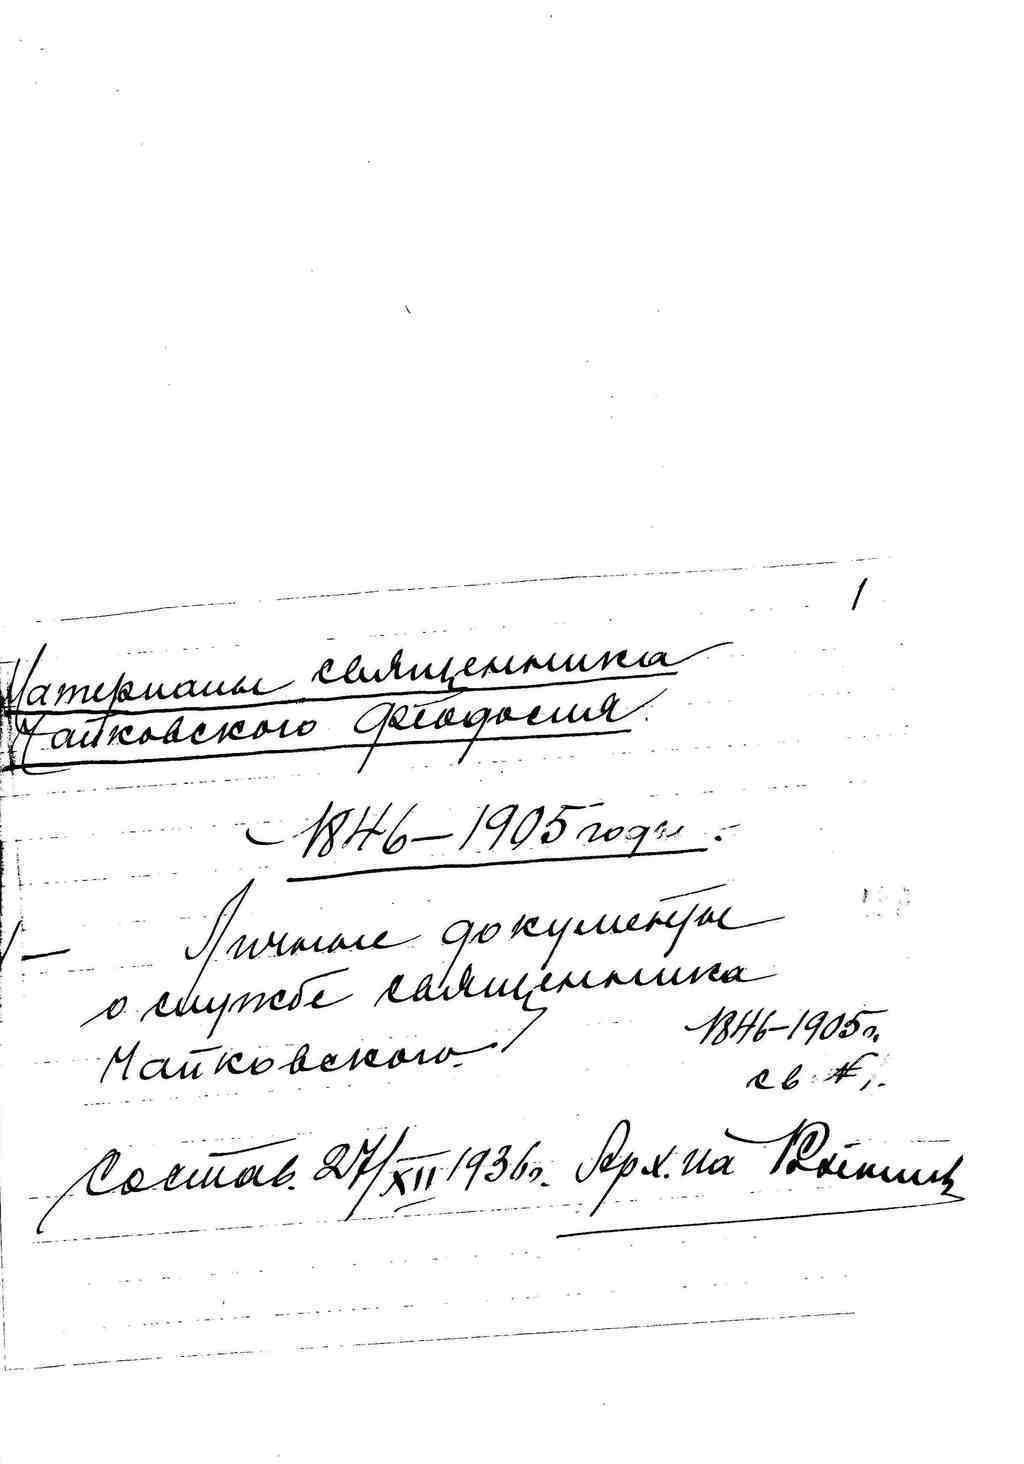 1
Материалы священника
Чайковского Феодосия.
1846–1905 годы.
1– Личные документы
о службе священника
Чайковского.
1846–1905 г.
св. № 1.
Состав. 27/XII 1936 г. Арх.